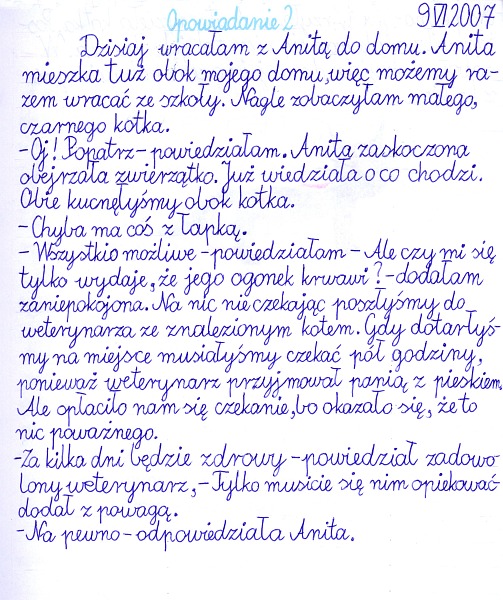 Opowiadanie 2 9 VI 2007
Dzisiaj wracałam z Anitą do domu. Anita
mieszka tuż obok mojego domu, więc możemy ra-
zem wracać ze szkoły. Nagle zobaczyłam małego,
czarnego kotka.
-Oj! Popatrz-powiedziałam. Anita zaskoczona
obejrzała zwierzątko. Już wiedziała o co chodzi.
Obie kucnęłyśmy obok kotka.
-Chyba ma coś z łapką.
-Wszystkio możliwe-powiedziałam-Ale czy mi się
tylko wydaje, że jego ogonek krwawi?-dodałam
zaniepokojona. Na nic nie czekając poszłyśmy do
weterynarza ze znalezionym kotem. Gdy dotarłyś-
my na miejsce musiałyśmy czekać pół godziny,
ponieważ weterynarz przyjmował panią z pieskiem.
Ale opłaciło nam się czekanie, bo okazało się, że to
nic poważnego.
-Za kilka dni będzie zdrowy-powiedział zadowo-
lony weterynarz,-Tylko musicie się nim opiekować-
dodał z powagą.
-Na pewno-odpowiedziała Anita.